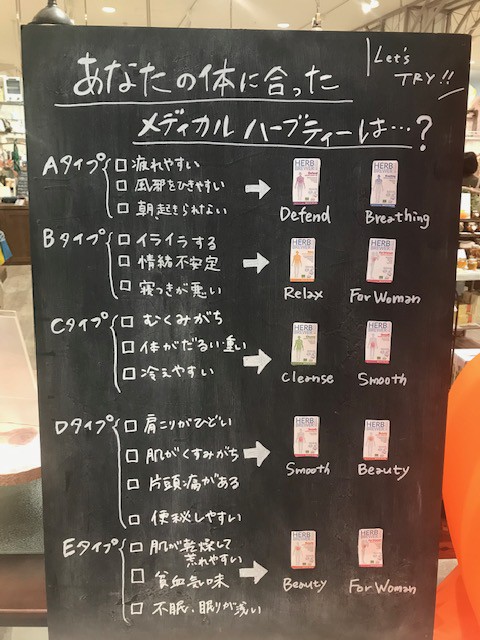 あなたの体に合った
Let's TRY!!
メディカルハーブティーは…?
Aタイプ
□ 疲れやすい
□ 風邪をひきやすい
□ 朝起きられない
HERB
Defend
HERB
Breathing
Bタイプ
□ イライラする
□ 情緒不安定
□ 寝つきが悪い
HERB
Relax
HERB
For Woman
Cタイプ
□ むくみがち
□ 体がだるい・重い
□ 冷えやすい
HERB
Cleanse
HERB
Smooth
Dタイプ
□ 肩こりがひどい
□ 肌がくすみがち
□ 片頭痛がある
□ 便秘しやすい
HERB
Smooth
HERB
Beauty
Eタイプ
□ 肌が乾燥して
荒れやすい
□ 貧血気味
□ 不眠・眠りが浅い
HERB
Beauty
HERB
For Woman